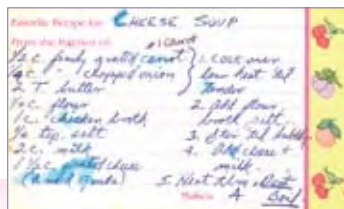 Favorite Recipe for: CHEESE SOUP
From the Kitchen of:
1 carrot
1/2 c. finely grated carrot
chopped onion
2 T. butter
1/4 c. flour
1 c. chicken broth
tsp salt
2 c. milk
1 1/2 c. grated cheese
1. Cook over
low heat til
tender
2. Add flour,
broth, salt
3. Stir til bubbly
4. Add cheese +
milk.
5. Heat thru. Don't
Boil
Makes: 4